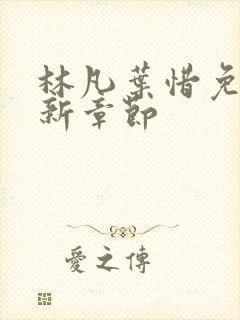 林凡葉惜免
新章節
愛之傳